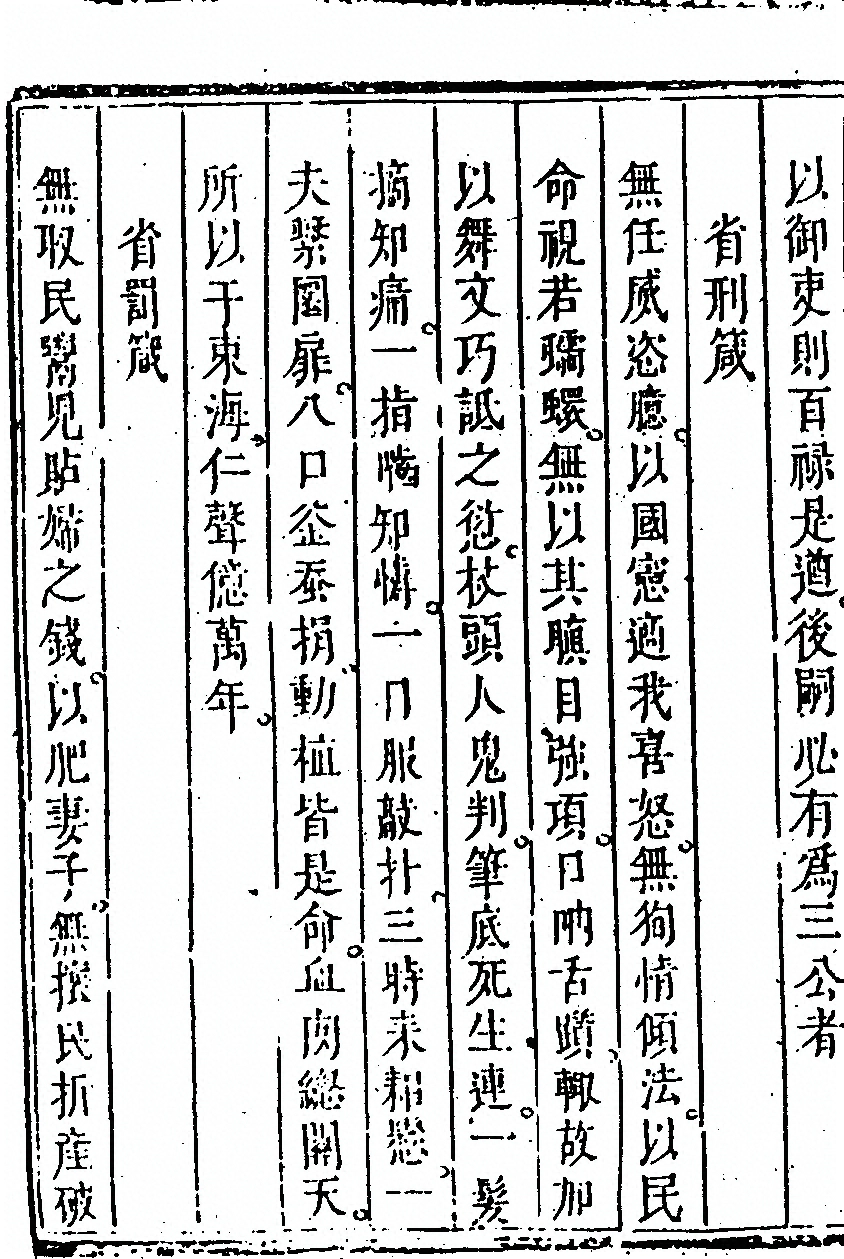 以御吏則百祿是遒後嗣必有為三公者
省刑箴
無任威恣臆以國憲適我喜怒無狥情傾法以民
命視若蠕蠉無以其瞋目強項口吶舌躓輙故加
以舞文巧詆之愆杖頭人鬼判筆底死生連一髮
摘知痛一指嚙知憐一日服敲扑三時耒耜懸一
夫繫圜扉八口釜泰捐動植皆是命血肉緫關天
所以于東海仁聲億萬年
省罰箴
無取民鬻児貼婦之錢以肥妻子無撰民折產破